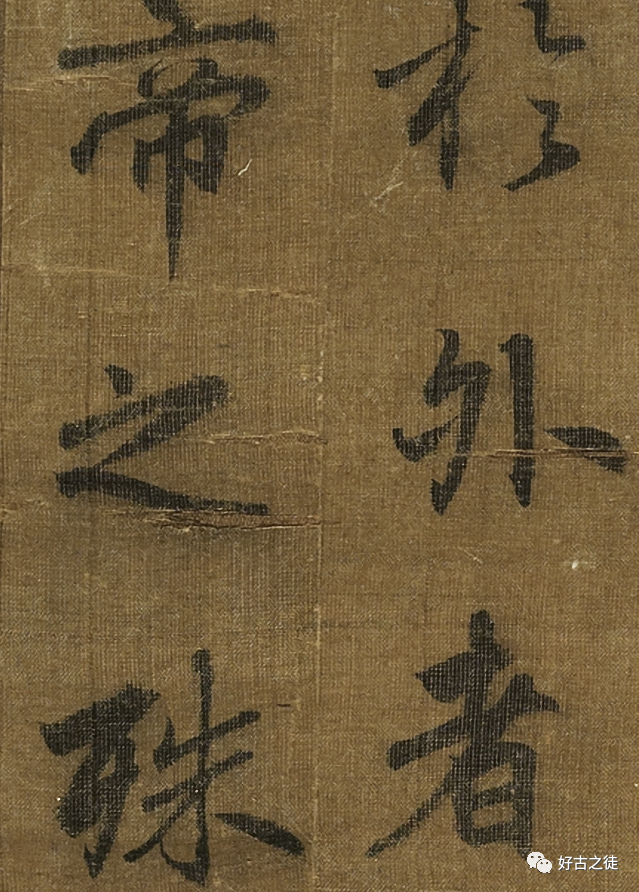 於外者
帝之殊
好古之徒